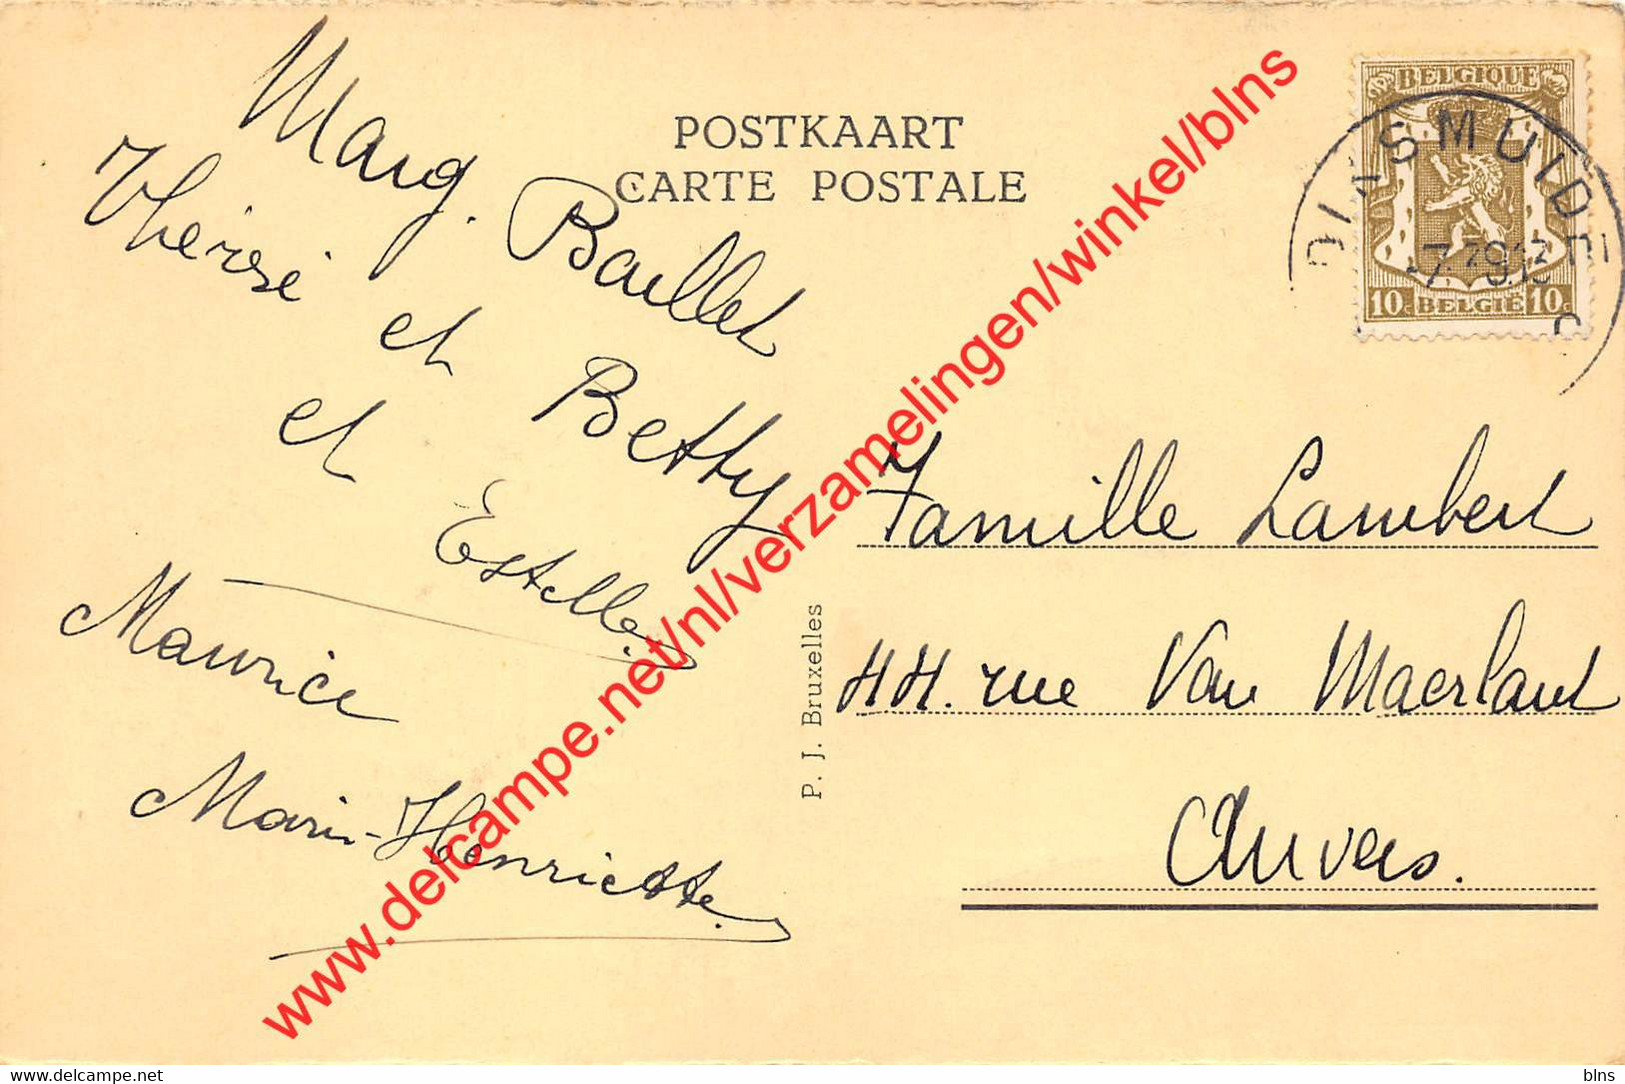 Marg. Baillet
Thérèse et Betty
et Estelle
Maurice
Marie-Henriette
POSTKAART
CARTE POSTALE
BELGIQUE
10c BELGIË 10c
P. J. Bruxelles
Famille Lambert
44. rue Van Maerlant
Anvers.
www.delcampe.net/nl/verzamelingen/winkel/blns
www.delcampe.net
blns